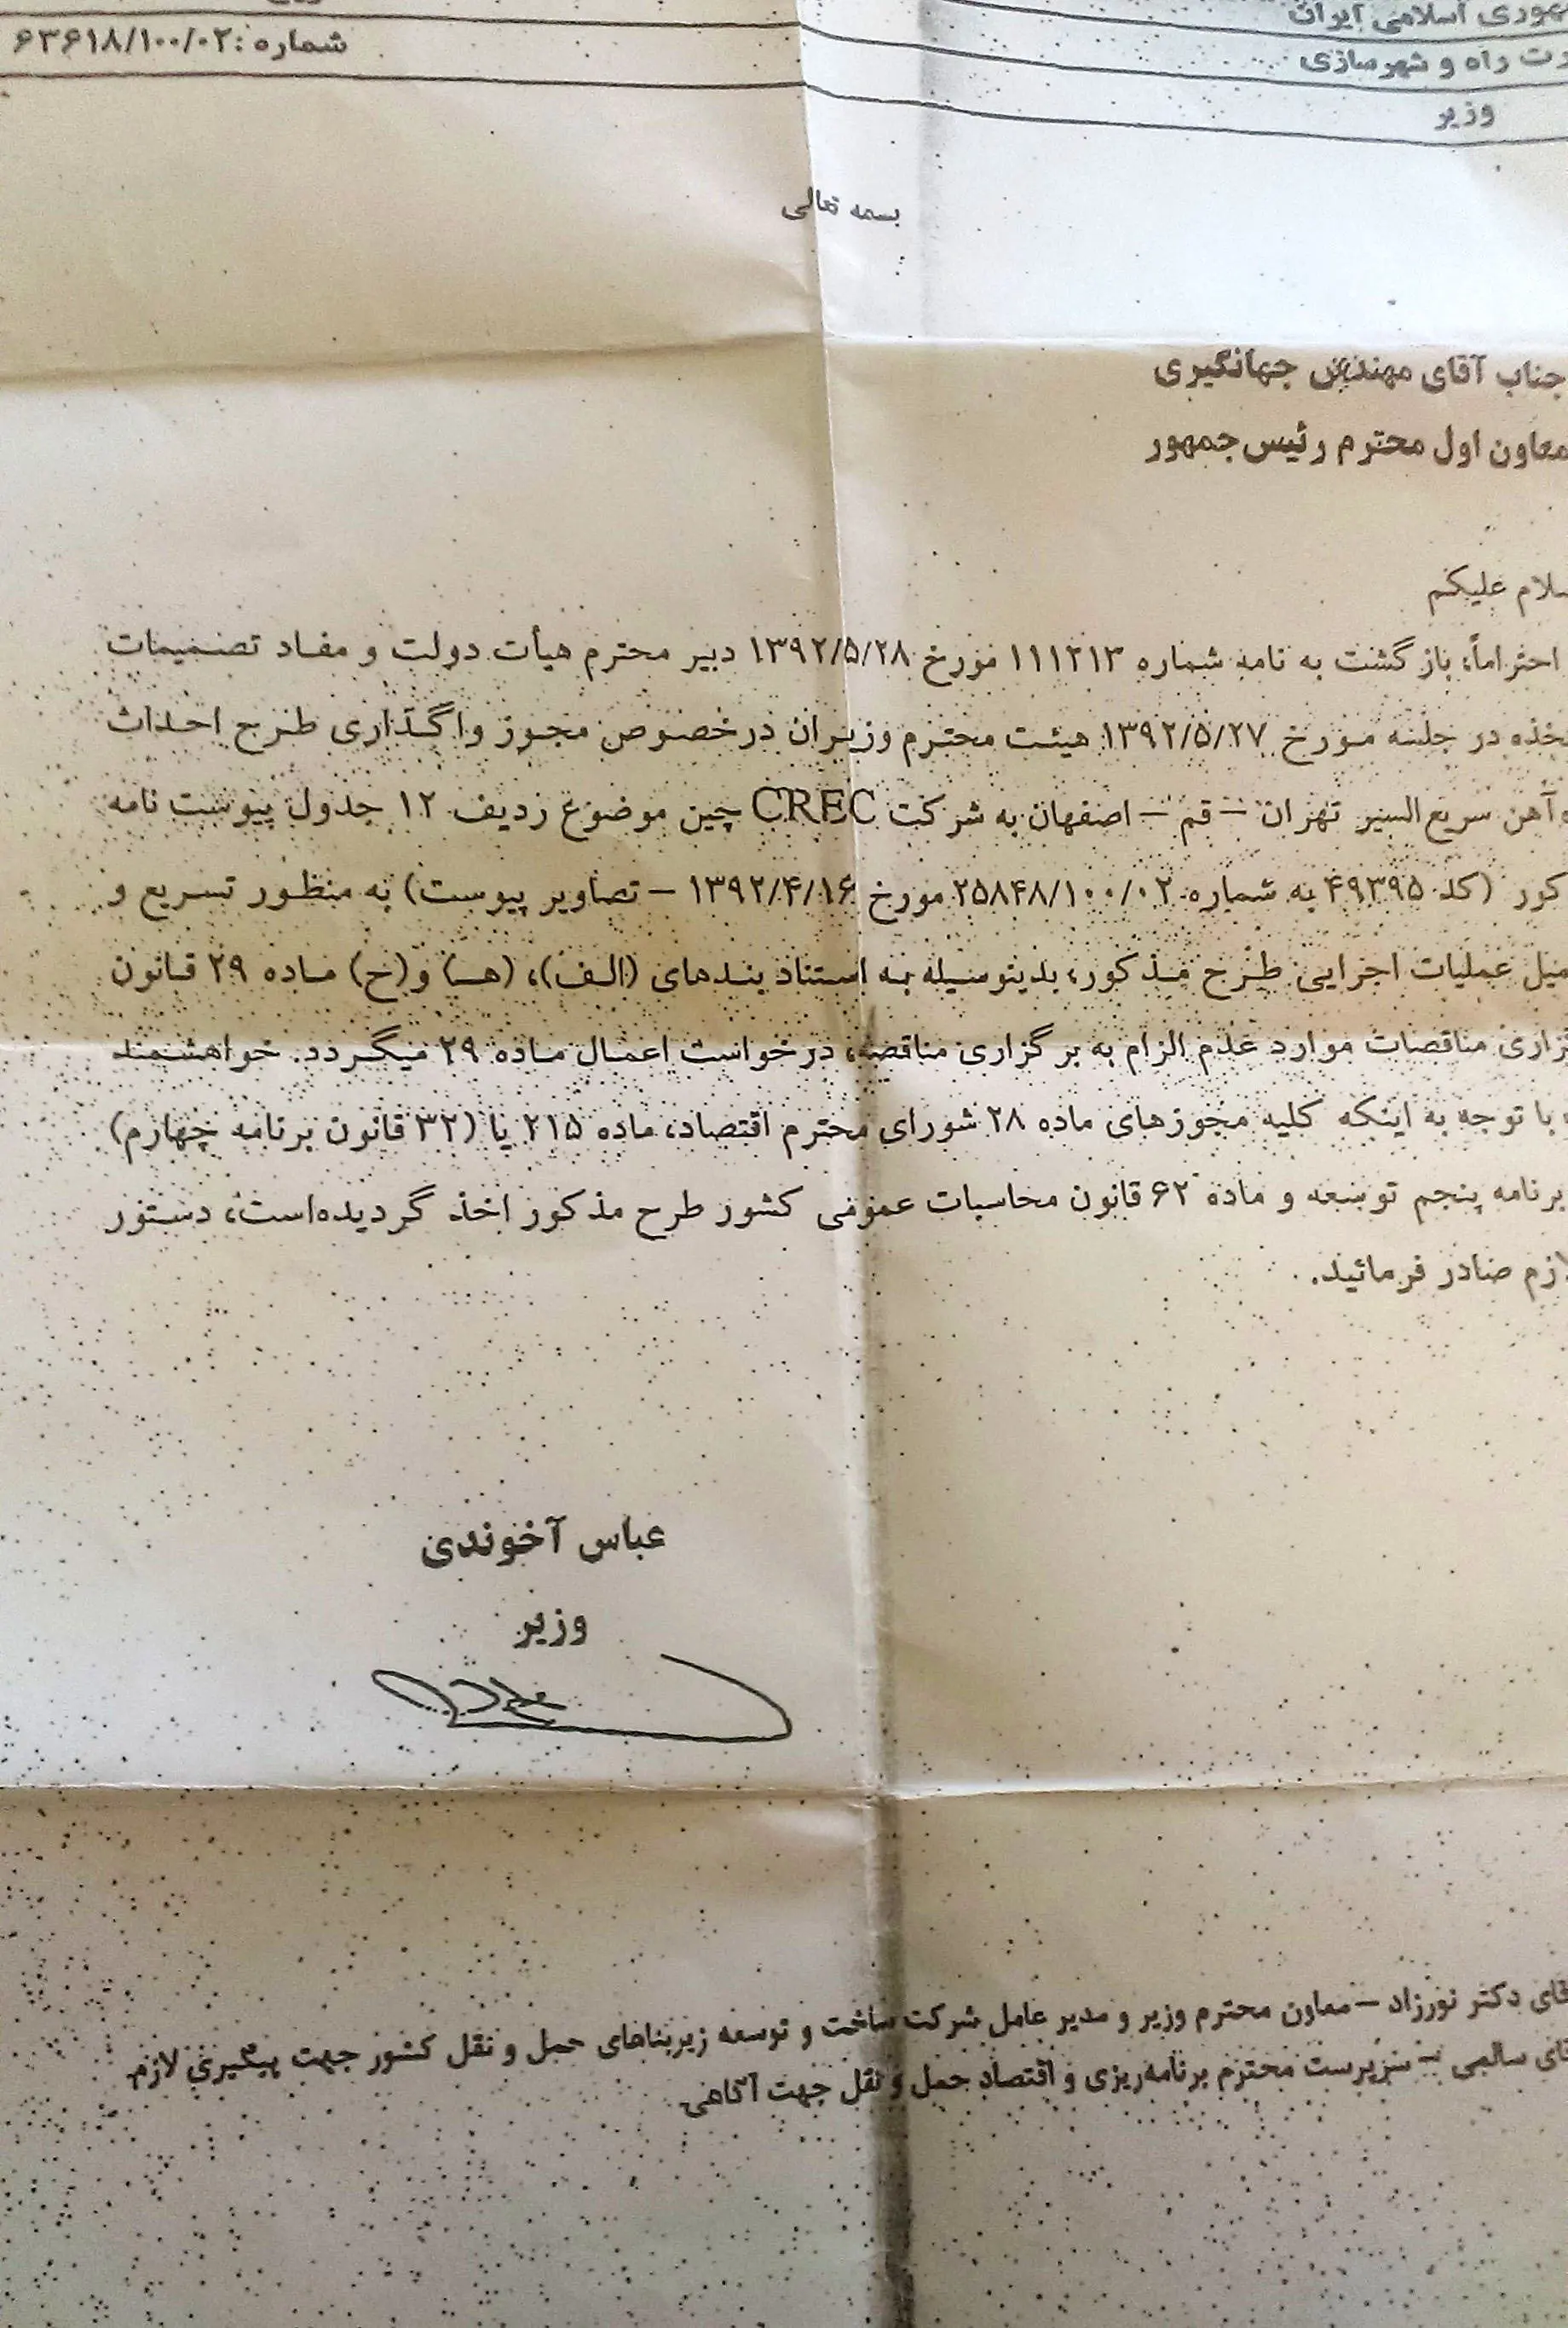 جمهوری اسلامی ایران
وزارت راه و شهرسازی
وزیر
شماره: ۶۳۶۱۸/۱۰۰/۰۲
بسمه تعالی
جناب آقای مهندس جهانگیری
معاون اول محترم رئیس‌جمهور
سلام علیکم
احتراماً، بازگشت به نامه شماره ۱۱۱۲۱۳ مورخ ۱۳۹۲/۵/۲۸ دبیر محترم هیأت دولت و مفاد تصمیمات
متخذه در جلسه مورخ ۱۳۹۲/۵/۲۷ هیئت محترم وزیران درخصوص مجوز واگذاری طرح احداث
راه‌آهن سریع‌السیر تهران – قم – اصفهان به شرکت CREC چین موضوع ردیف ۱۲ جدول پیوست نامه
مذکور (کد ۴۹۳۹۵ به شماره ۲۵۸۴۸/۱۰۰/۰۲ مورخ ۱۳۹۲/۴/۱۶ – تصاویر پیوست) به منظور تسریع و
عملیات اجرایی طرح مذکور، بدینوسیله به استناد بندهای (الف)، (هـ) و(ح) ماده ۲۹ قانون
برگزاری مناقصات موارد عدم الزام به برگزاری مناقصه، درخواست اعمال ماده ۲۹ میگردد. خواهشمند
با توجه به اینکه کلیه مجوزهای ماده ۲۸ شورای محترم اقتصاد، ماده ۲۱۵ یا (۳۲ قانون برنامه چهارم)
برنامه پنجم توسعه و ماده ۶۲ قانون محاسبات عمومی کشور طرح مذکور اخذ گردیده‌است، دستور
لازم صادر فرمائید.
عباس آخوندی
وزیر
آقای دکتر نورزاد – معاون محترم وزیر و مدیر عامل شرکت ساخت و توسعه زیربناهای حمل و نقل کشور جهت پیگیری لازم
آقای سالمی – سرپرست محترم برنامه‌ریزی و اقتصاد حمل و نقل جهت آگاهی